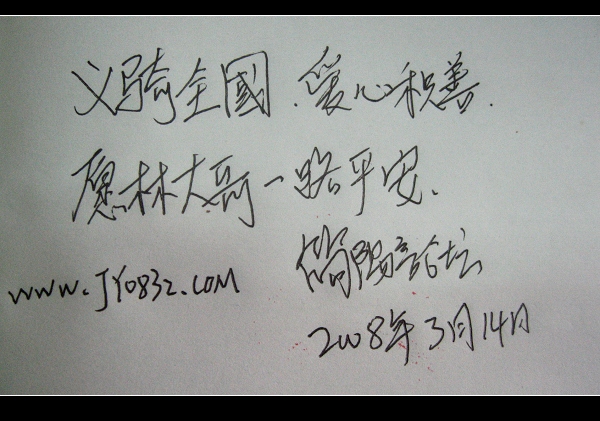 义骑全國.爱心积善.
愿林大哥一路平安.
简阳论坛
www.JY0832.COM
2008年3月14日